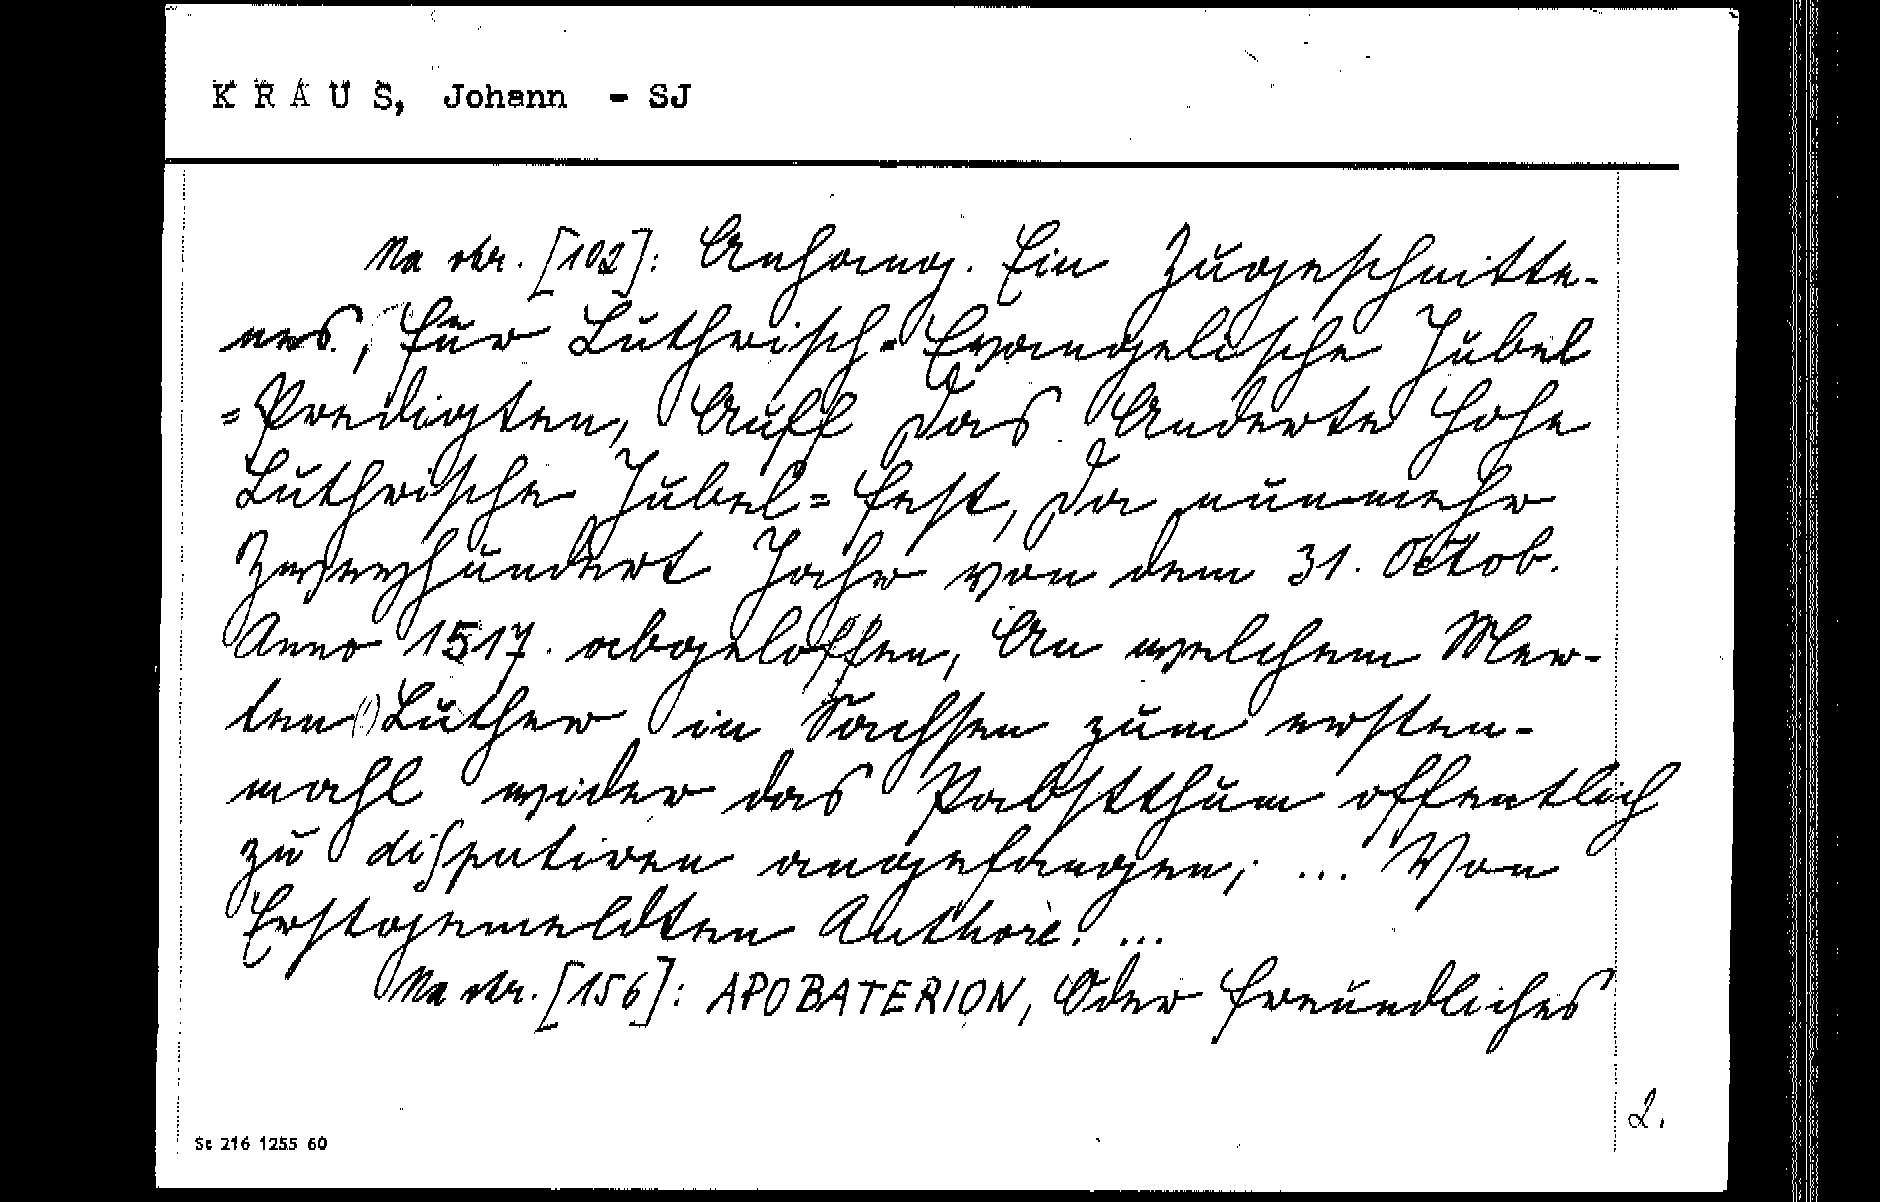 K R A U S, Johann - SJ
Na str. [102]: Anhang. Ein Zugeschnitte-
nes, für Luthrisch-Evangelische Jubel
=Predigten, Auff das Anderte hohe
Luthrische Jubel=Fest, da nunmehr
Zweyhundert Jahr von dem 31. Octob.
Anno 1517. abgeloffen, An welchem Mer-
ten (!) Luther in Sachsen zum ersten-
mahl wider das Pabstthum offentlich
zu disputiren angefangen; ... Von
Erstgemeldten Authore. ...
Na str. [156]: APOBATERION, Oder freundliches
2.
St 216 1255 60